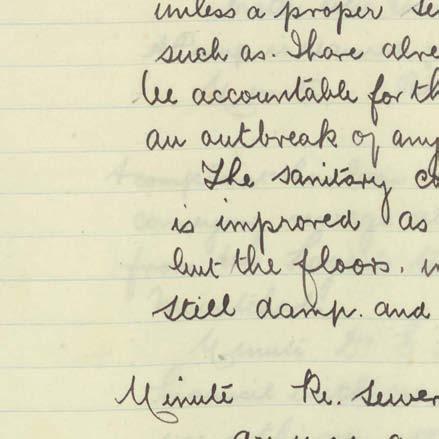 unless a proper se
such as. I have alre
be accountable for th
an outbreak of any
The sanitary co
is improved as
but the floors.
still damp. and
Minute Re. Sewer